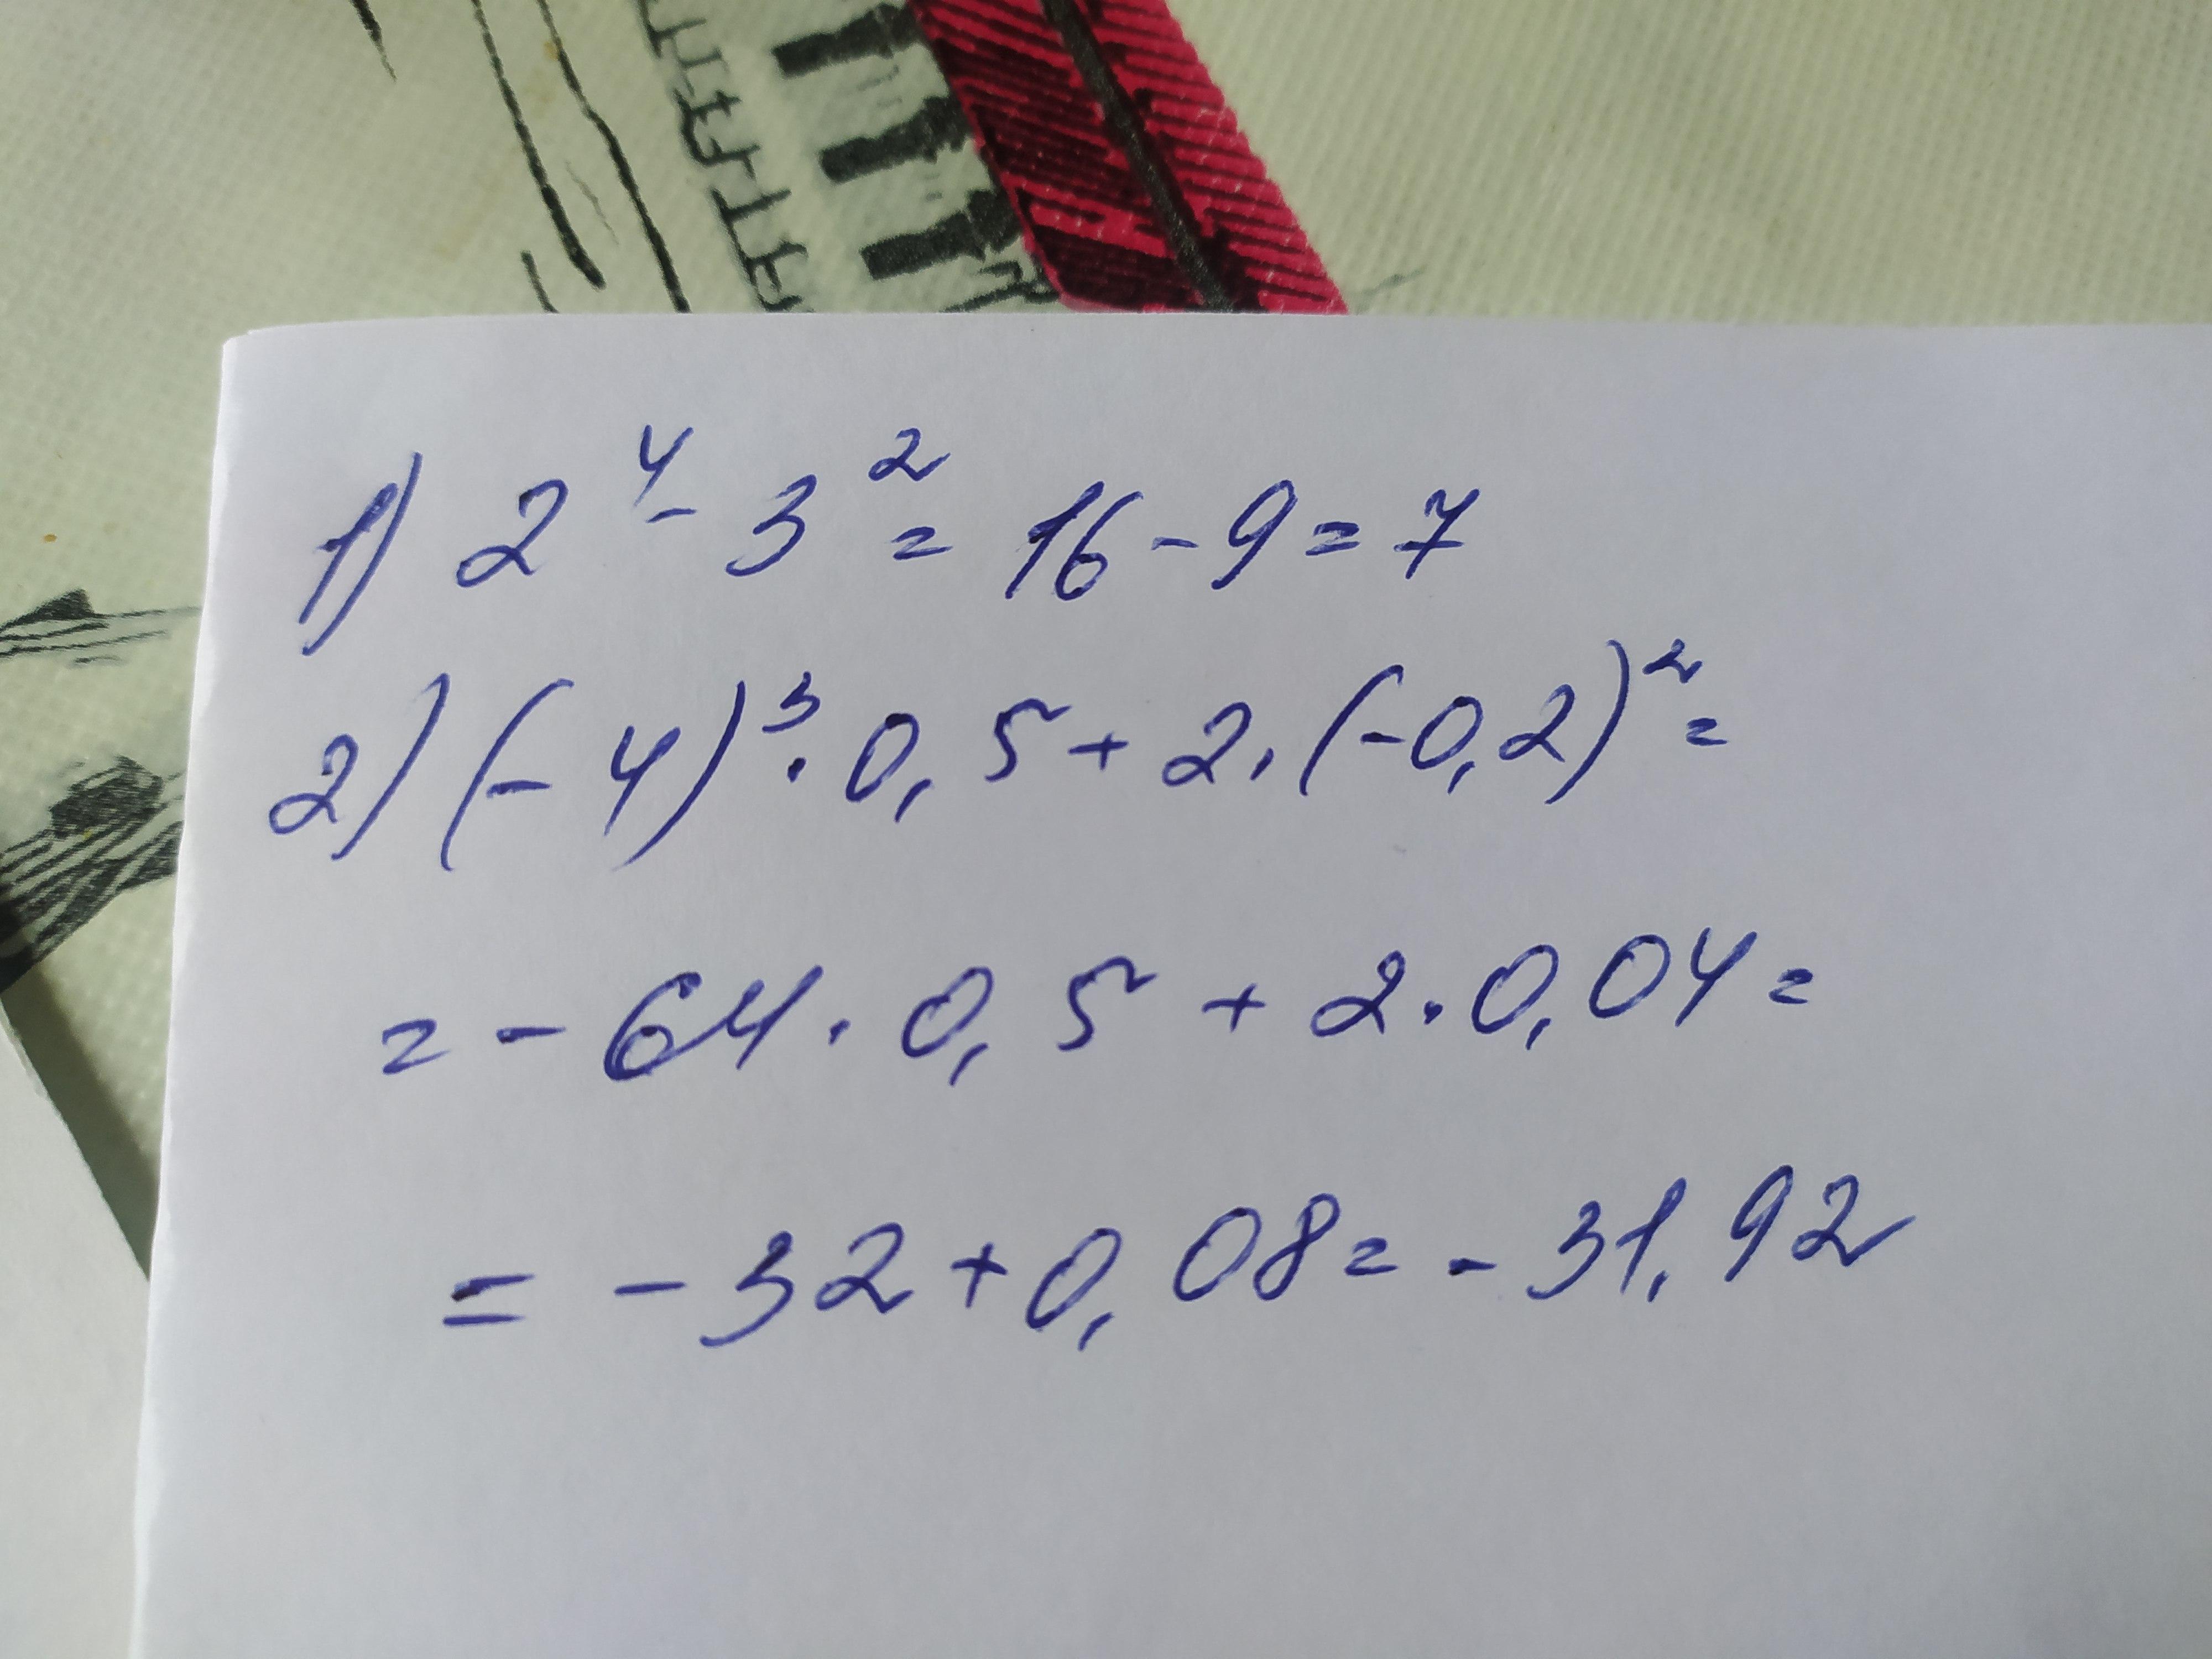 1) 2⁴ - 3² = 16 - 9 = 7
2) (- 4)³ · 0,5 + 2 · (-0,2)² =
= - 64 · 0,5 + 2 · 0,04 =
= - 32 + 0,08 = - 31,92